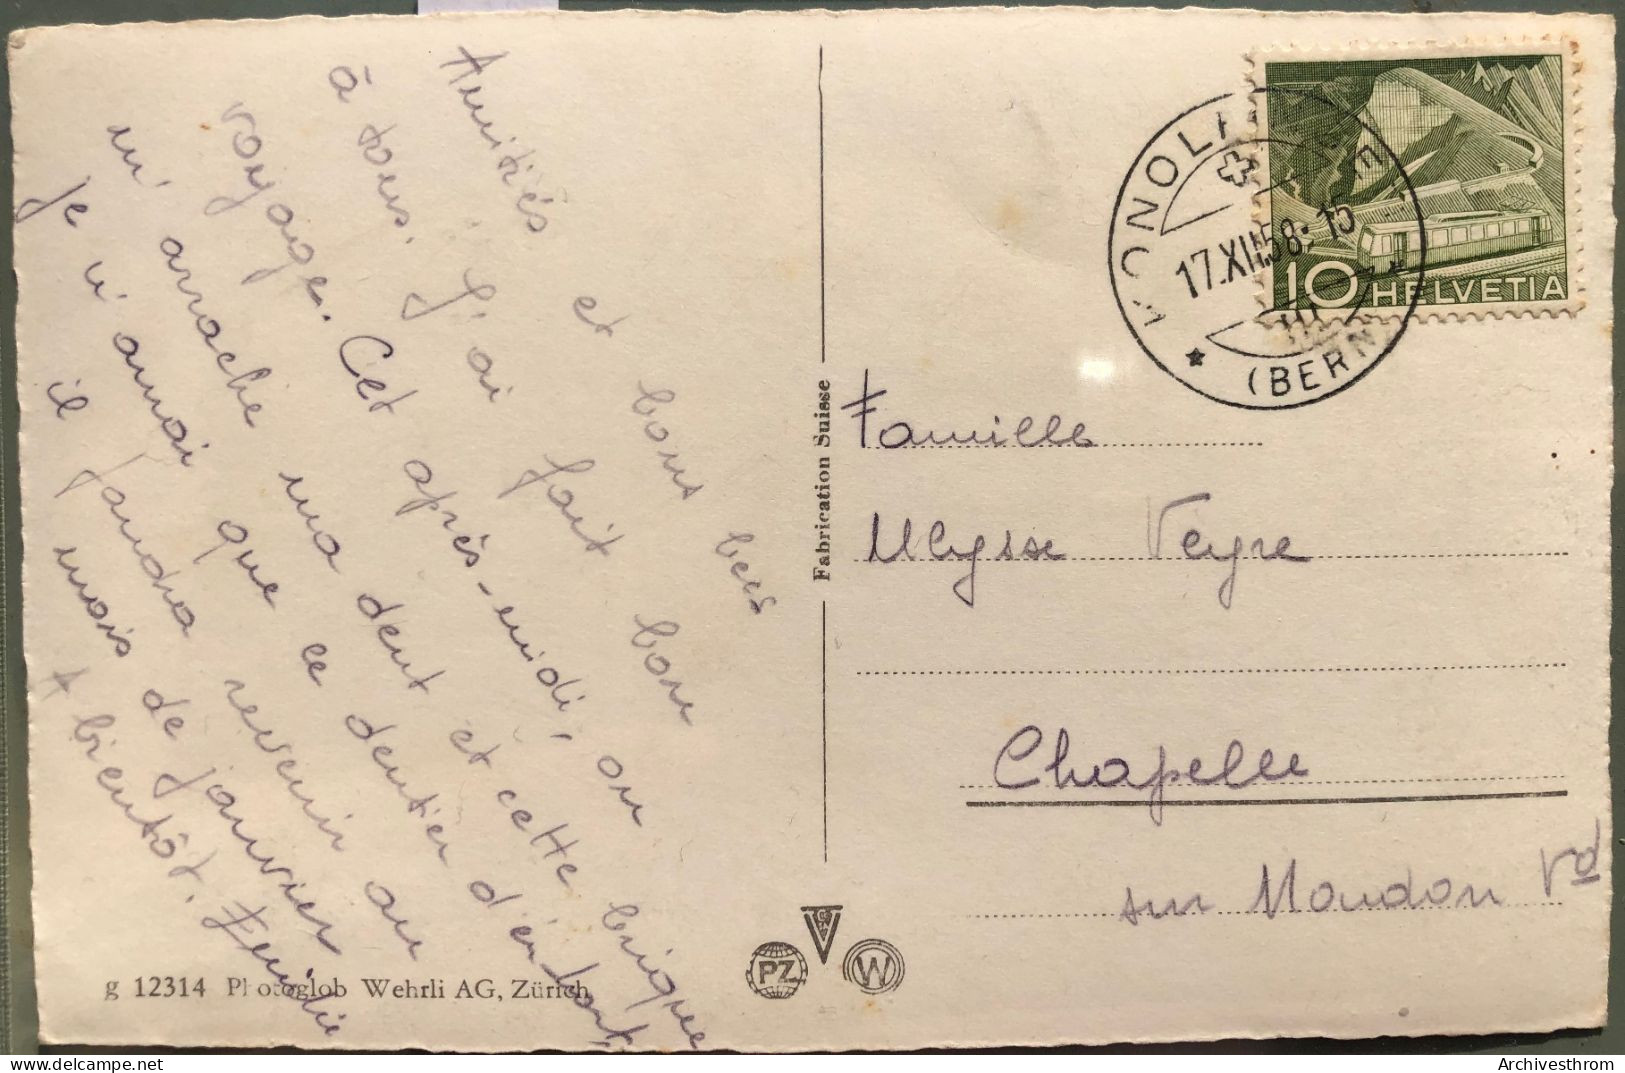 Amitiés et bons becs
à tous. J'ai fait bon
voyage. Cet après-midi, on
m'arrache ma dent et cette brique
Je n'aurai que ce dentier d'en haut,
il faudra revenir au
mois de janvier
A bientôt.
g 12314 Photoglob Wehrli AG, Zürich
Fabrication Suisse
PZ
W
KONOLFINGEN
17.XII.58.-15
(BERN)
10 HELVETIA
Famille
Ulysse Veyre
Chapelle
sur Moudon Vd
Archivesthrom